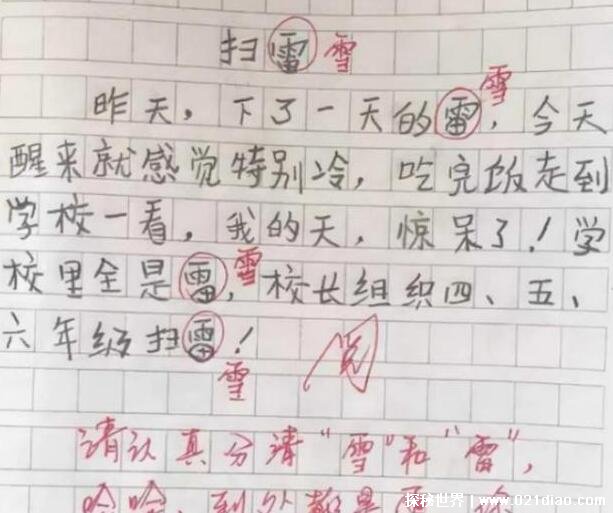 扫雷 雪
雪
昨天，下了一天的雷，今天
醒来就感觉特别冷，吃完饭走到
学校一看，我的天，惊呆了！学
校里全是雷，雪校长组织四、五、
六年级扫雷！
雪 阅
请认真分清“雪”和“雷”，
哈哈，到处都是
探秘世界 | www.021diao.com